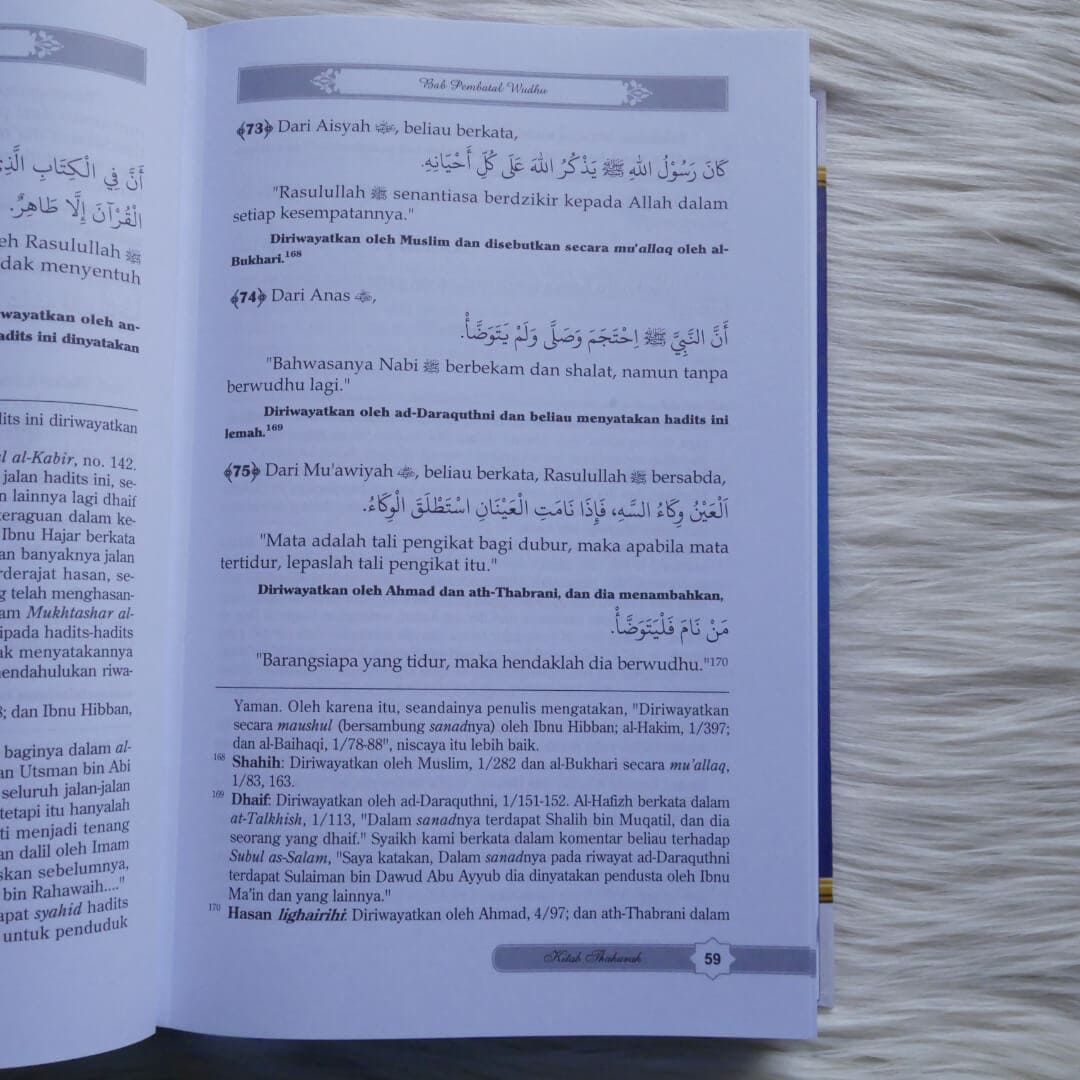 أَنَّ فِي الْكِتَابِ الَّذِي
الْقُرْآنَ إِلَّا طَاهِرٌ.
eh Rasulullah ﷺ
dak menyentuh
wayatkan oleh an-
adits ini dinyatakan
dits ini diriwayatkan
al-Kabir, no. 142.
jalan hadits ini, se-
n lainnya lagi dhaif
eraguan dalam ke-
Ibnu Hajar berkata
an banyaknya jalan
rderajat hasan, se-
g telah menghasan-
am Mukhtashar al-
ripada hadits-hadits
ak menyatakannya
nendahulukan riwa-
8; dan Ibnu Hibban,
baginya dalam al-
an Utsman bin Abi
seluruh jalan-jalan
tetapi itu hanyalah
ti menjadi tenang
an dalil oleh Imam
skan sebelumnya,
bin Rahawaih...."
apat syahid hadits
untuk penduduk
Bab Pembatal Wudhu
﴾73﴿ Dari Aisyah رضي الله عنها, beliau berkata,
كَانَ رَسُوْلُ اللهِ ﷺ يَذْكُرُ اللهَ عَلَى كُلِّ أَحْيَانِهِ.
"Rasulullah ﷺ senantiasa berdzikir kepada Allah dalam
setiap kesempatannya."
Diriwayatkan oleh Muslim dan disebutkan secara mu'allaq oleh al-
Bukhari.168
﴾74﴿ Dari Anas رضي الله عنه,
أَنَّ النَّبِيَّ ﷺ اِحْتَجَمَ وَصَلَّى وَلَمْ يَتَوَضَّأْ.
"Bahwasanya Nabi ﷺ berbekam dan shalat, namun tanpa
berwudhu lagi."
Diriwayatkan oleh ad-Daraquthni dan beliau menyatakan hadits ini
lemah.169
﴾75﴿ Dari Mu'awiyah رضي الله عنه, beliau berkata, Rasulullah ﷺ bersabda,
اَلْعَيْنُ وِكَاءُ السَّهِ، فَإِذَا نَامَتِ الْعَيْنَانِ اسْتَطْلَقَ الْوِكَاءُ.
"Mata adalah tali pengikat bagi dubur, maka apabila mata
tertidur, lepaslah tali pengikat itu."
Diriwayatkan oleh Ahmad dan ath-Thabrani, dan dia menambahkan,
مَنْ نَامَ فَلْيَتَوَضَّأْ.
"Barangsiapa yang tidur, maka hendaklah dia berwudhu."170
Yaman. Oleh karena itu, seandainya penulis mengatakan, "Diriwayatkan
secara maushul (bersambung sanadnya) oleh Ibnu Hibban; al-Hakim, 1/397;
dan al-Baihaqi, 1/78-88", niscaya itu lebih baik.
168 Shahih: Diriwayatkan oleh Muslim, 1/282 dan al-Bukhari secara mu'allaq,
1/83, 163.
169 Dhaif: Diriwayatkan oleh ad-Daraquthni, 1/151-152. Al-Hafizh berkata dalam
at-Talkhish, 1/113, "Dalam sanadnya terdapat Shalih bin Muqatil, dan dia
seorang yang dhaif." Syaikh kami berkata dalam komentar beliau terhadap
Subul as-Salam, "Saya katakan, Dalam sanadnya pada riwayat ad-Daraquthni
terdapat Sulaiman bin Dawud Abu Ayyub dia dinyatakan pendusta oleh Ibnu
Ma'in dan yang lainnya."
170 Hasan lighairihi: Diriwayatkan oleh Ahmad, 4/97; dan ath-Thabrani dalam
Kitab Thaharah
59